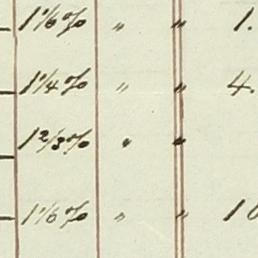 1 1/6 % " " 1.
1 1/4 % " " 4.
1 2/3 % " "
1 1/6 % " " 10